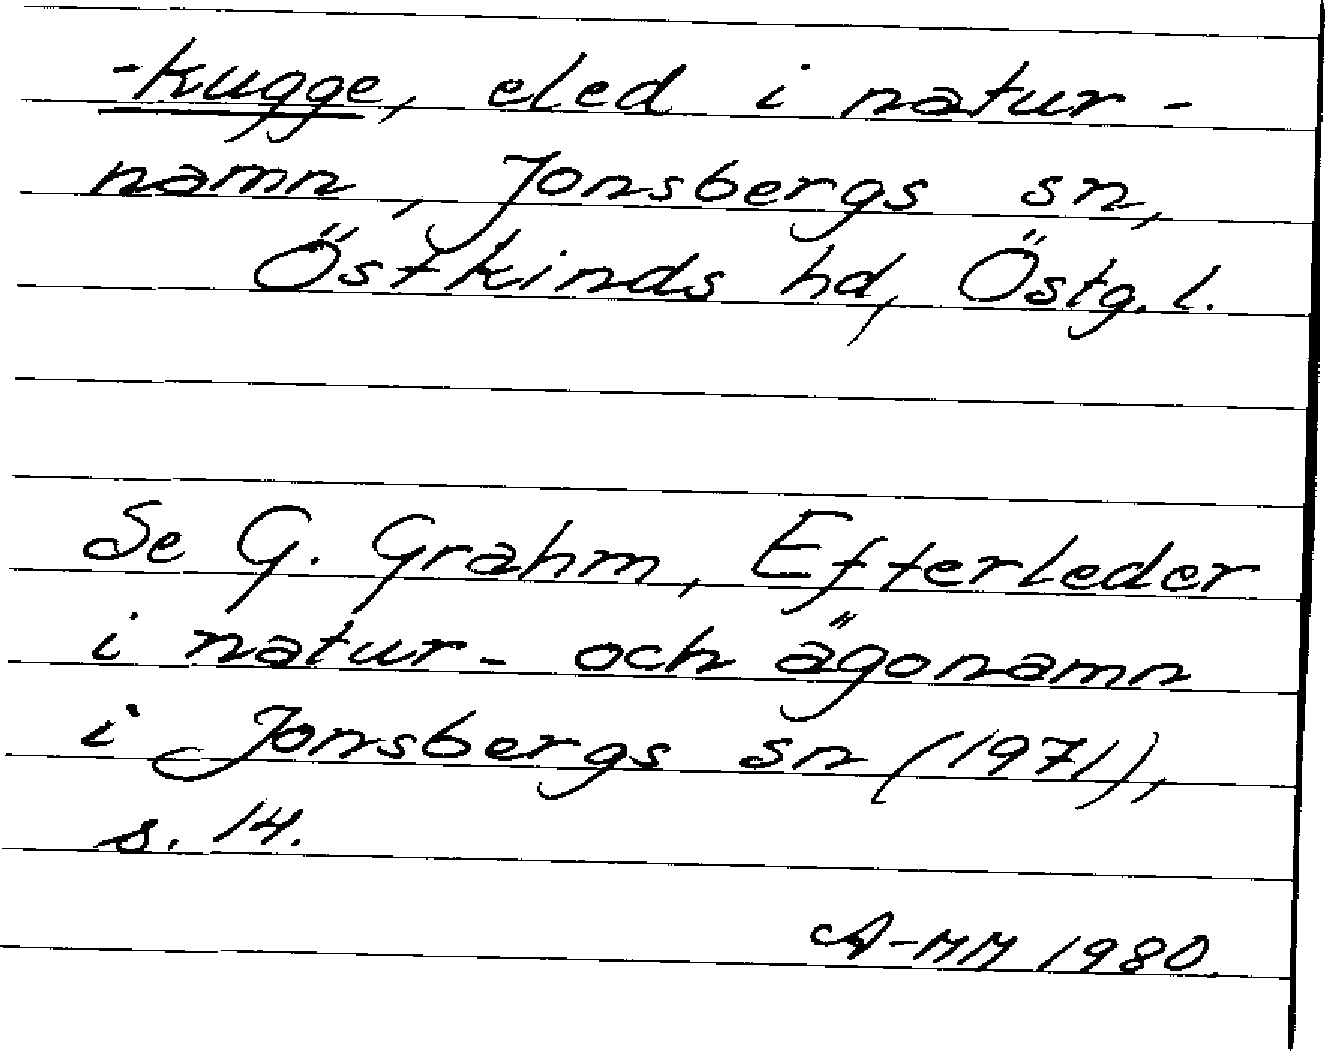 -kugge, eled i natur-
namn, Jonsbergs sn,
Östkinds hd, Östg.l.
Se G. Grahm, Efterleder
i natur- och ägonamn
i Jonsbergs sn (1971),
s. 14.
A-MM 1980.